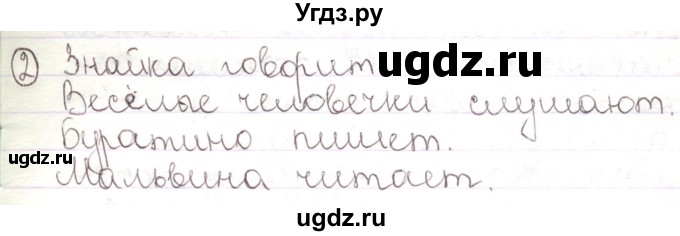 Угдз.ру
② Знайка говорит
ugdz.ru
Весёлые человечки слушают.
Буратино пишет.
ugdz.ru
Мальвина читает.
ugdz.ru
ugdz.ru